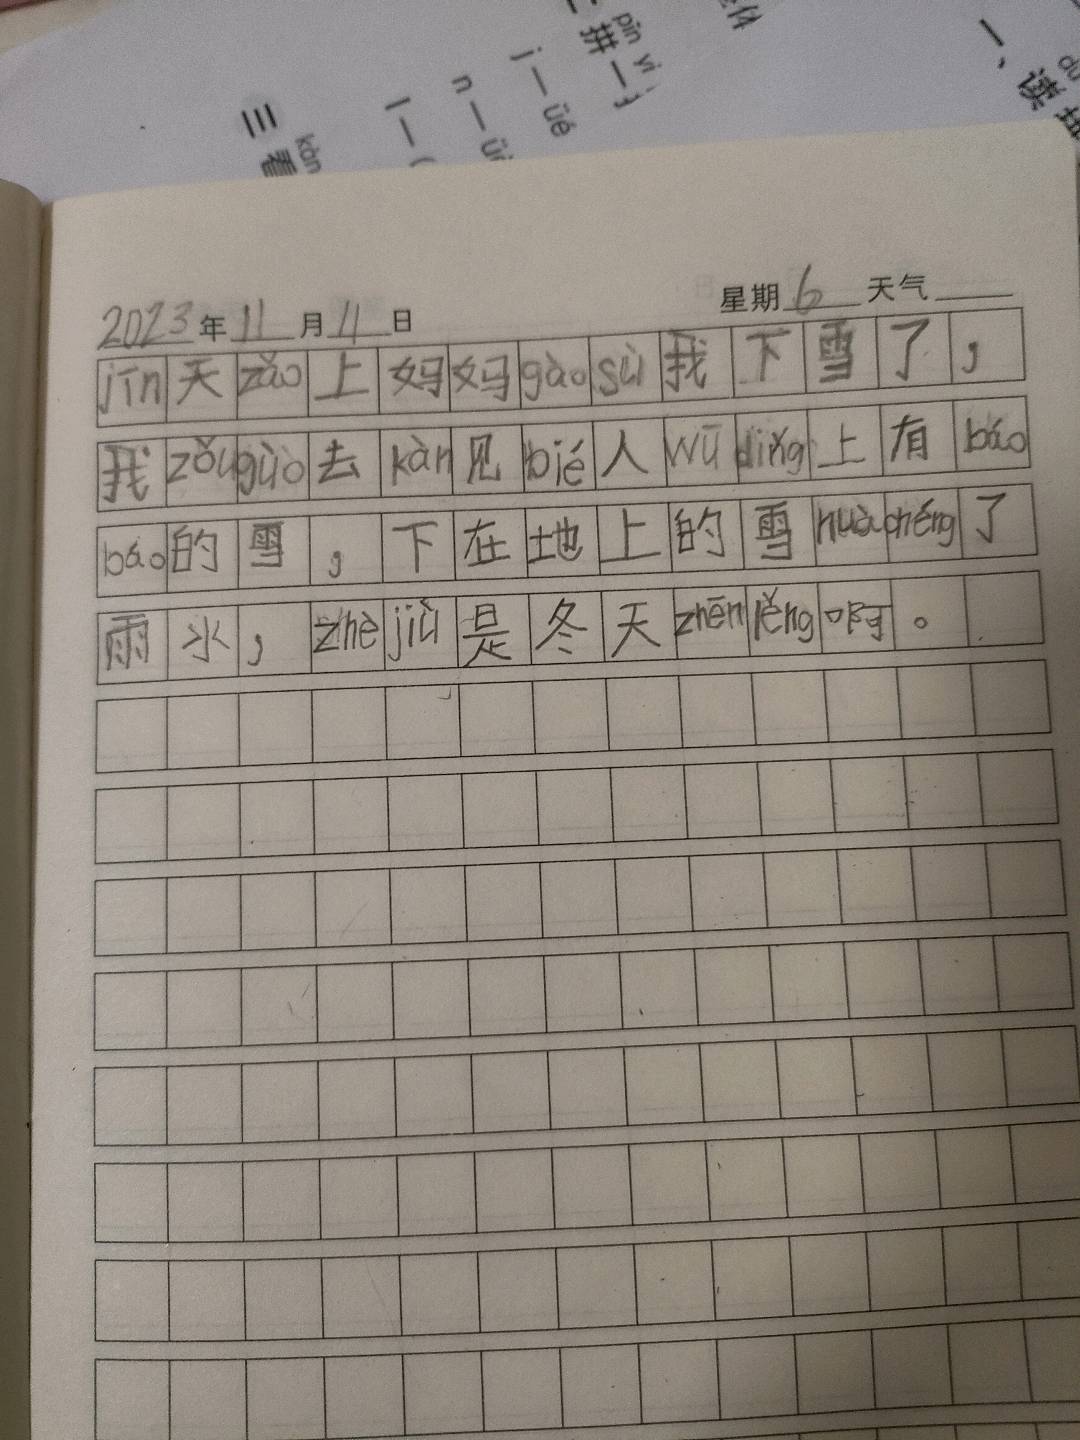 三 看 kàn
n — ü
j — üé
二 拼一 pīn yi
一、读 dú
2023年11月11日 星期6 天气
jīn天zǎo上妈妈gàosù我下雪了，
我zǒuguò去kàn见bié人wūdǐng上有báo
báo的雪，下在地上的雪huàchéng了
雨水，zhèjiù是冬天zhēnlěng啊。